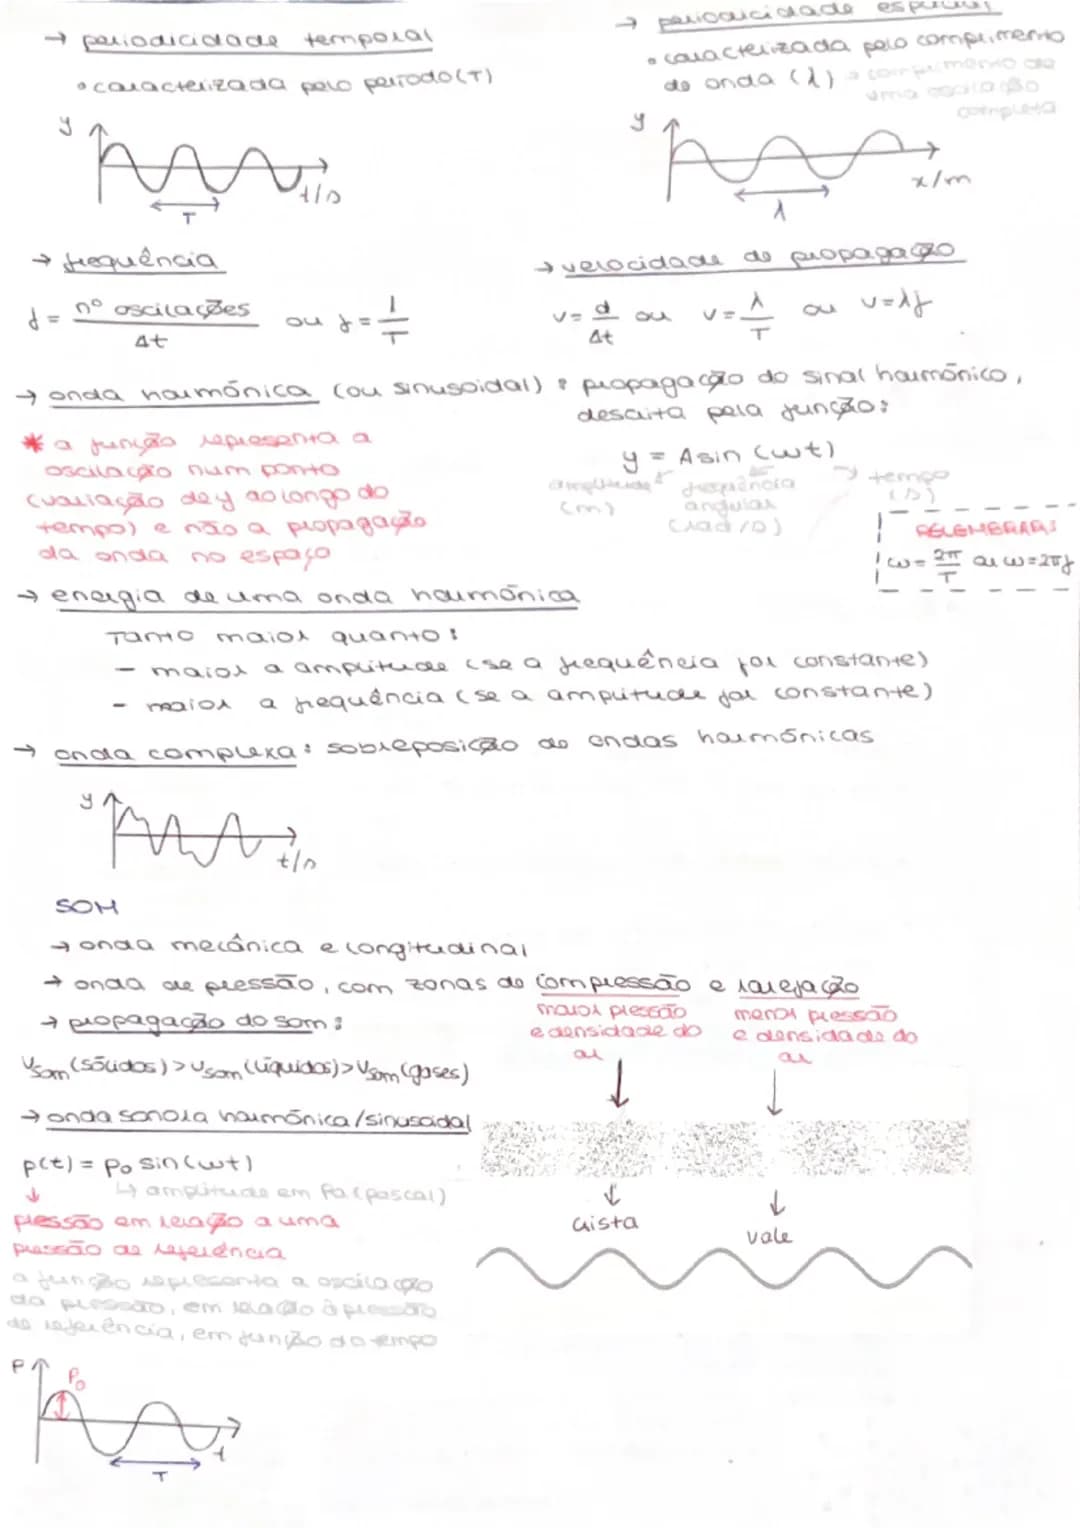 → periodicidade temporal
• caracterizada pelo período (T)
y
t/s
T
→ periodicidade espacial
• caracterizada pelo comprimento
de onda (λ) → comprimento de
uma oscilação
completa
y
x/m
λ
→ frequência
f = nº oscilações / Δt ou f = 1/T
→ velocidade de propagação
v = d/Δt ou v = λ/T ou v = λf
→ onda harmónica (ou sinusoidal): propagação do sinal harmónico,
descrita pela função:
y = A sin (ωt)
amplitude (m)
frequência angular (rad/s)
tempo (s)
* a função representa a
oscilação num ponto
(variação de y ao longo do
tempo) e não a propagação
da onda no espaço
RELEMBRAR:
ω = 2π/T ou ω = 2πf
→ energia de uma onda harmónica
Tanto maior quanto:
- maior a amplitude (se a frequência for constante)
- maior a frequência (se a amplitude for constante)
→ onda complexa: sobreposição de ondas harmónicas
y
t/s
SOM
→ onda mecânica e longitudinal
→ onda de pressão, com zonas de compressão e rarefação
maior pressão
e densidade do
ar
menor pressão
e densidade do
ar
→ propagação do som:
Vsom (sólidos) > Vsom (líquidos) > Vsom (gases)
→ onda sonora harmónica/sinusoidal
p(t) = p₀ sin (ωt)
↳ amplitude em Pa (pascal)
pressão em relação a uma
pressão de referência
a função representa a oscilação
da pressão, em relação à pressão
de referência, em função do tempo
crista
vale
P
P₀
t
T